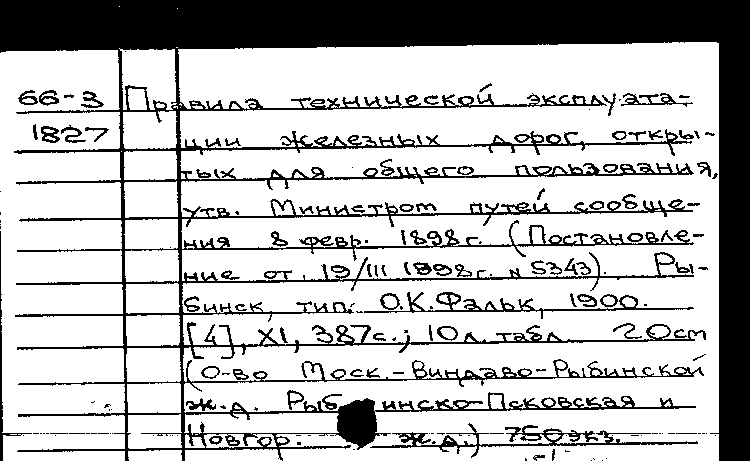 66-3 Правила технической эксплуата-
1827 ции железных дорог, откры-
тых для общего пользования,
утв. Министром путей сообще-
ния 8 февр. 1898г. (Постановле-
ние от. 19/III 1898г. N 5343). Ры-
бинск, тип. О.К.Фальк, 1900.
[4], XI, 387с.; 10л. табл. 20см
(О-во Моск.-Виндаво-Рыбинской
ж.д. Рыбинско-Псковская и
Новгор. ж.д.) 750экз.